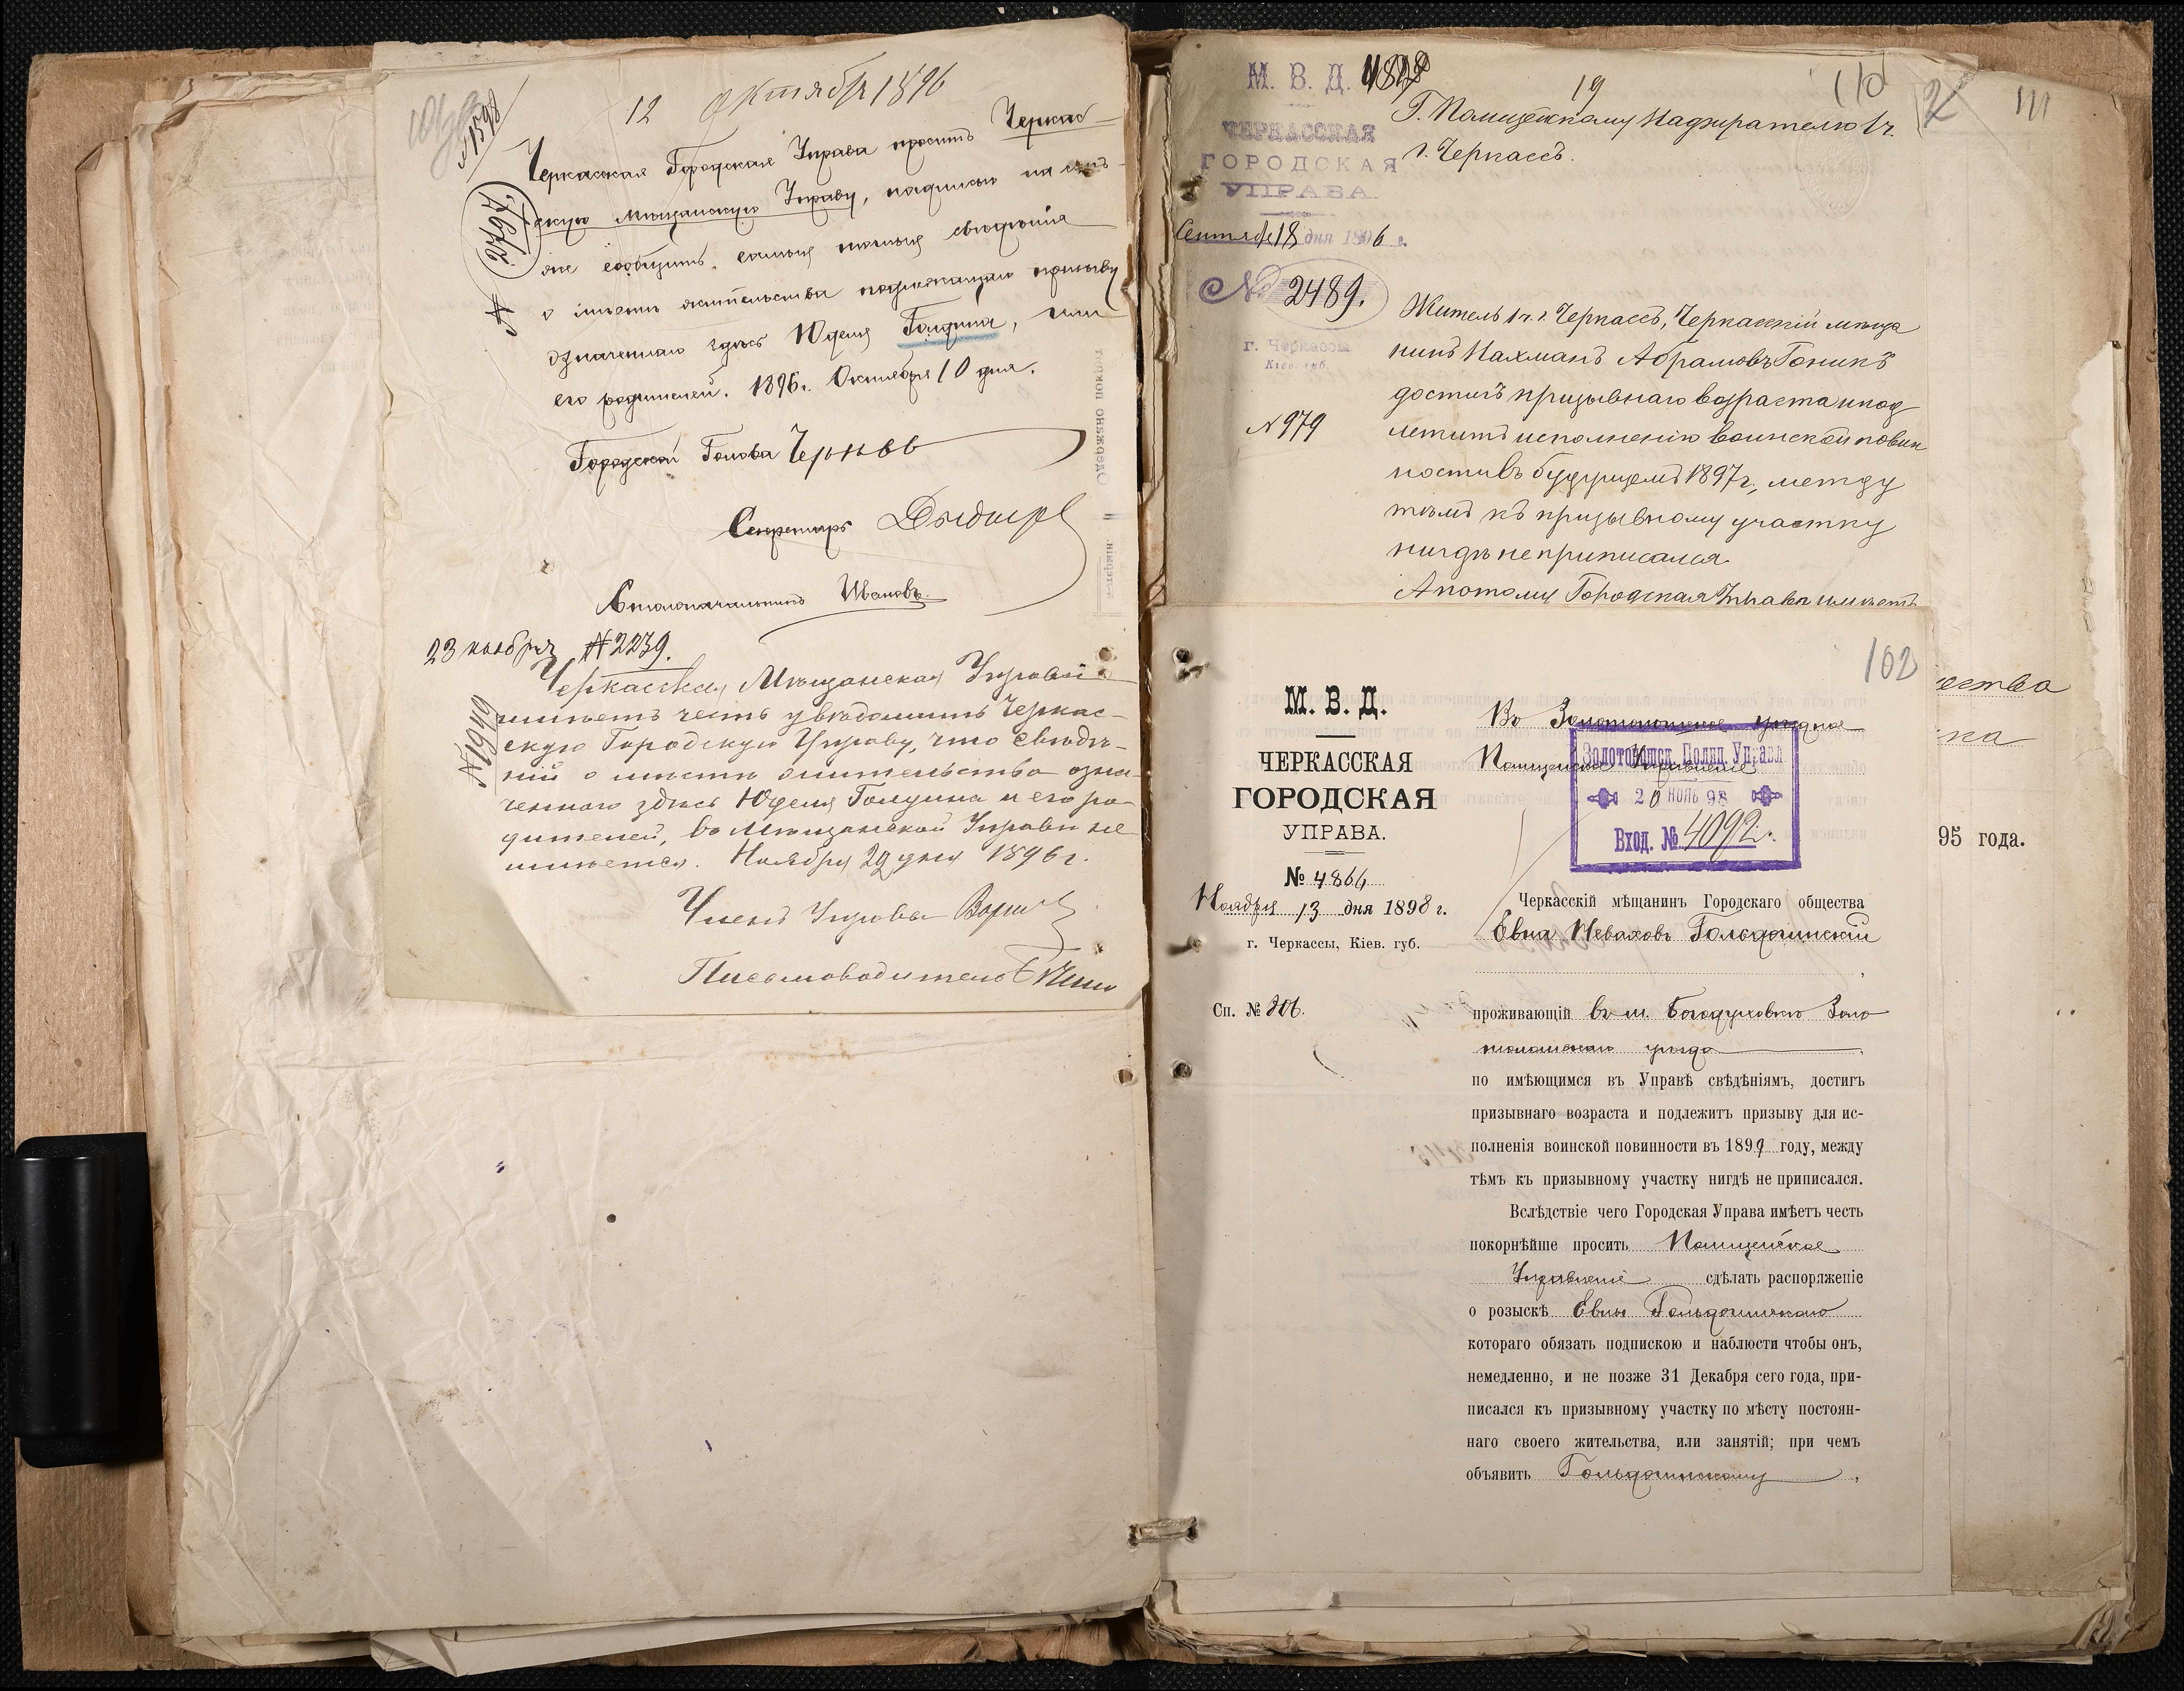 12 Октября 1896
№ 1598
Черкасская Городская Управа проситъ Черкас-
скую Мѣщанскую Управу, надписью на семъ-
же сообщить самыя точныя свѣдѣнія
о мѣстѣ жительства подлежащаго призыву
означеннаго здѣсь Юделя Голдина, или
его родителей. 1896 г. Октября 10 дня.
№ 7672
Городской Голова
Секретарь
Столоначальникъ Ивановъ.
23 ноября № 2239.
Черкасская Мѣщанская Управа
имѣетъ честь увѣдомить Черкас-
скую Городскую Управу, что свѣдѣ-
ній о мѣстѣ жительства озна-
ченнаго здѣсь Юделя Голдина и его ро-
дителей, въ Мѣщанской Управѣ не
имѣется. Ноября 29 дня 1896 г.
№ 1940
Членъ Управы
Письмоводитель
М. В. Д.
ЧЕРКАССКАЯ
ГОРОДСКАЯ
УПРАВА
Сентября 18 дня 1896 г.
№ 2489.
г. Черкассы
Кіев. губ.
№ 979
19
110
Г. Полицейскому Надзирателю 1 ч.
г. Черкассъ.
Житель 1 ч. г. Черкассъ, Черкасскій мѣща
нинъ Нахманъ Абрамовъ Гоникъ
достигъ призывнаго возраста и под
лежитъ исполненію воинской повин
ности въ будущемъ 1897 г., между
тѣмъ къ призывному участку
нигдѣ не приписался.
А потому Городская Управа имѣетъ
2
111
ества
ка
95 года.
102
М. В. Д.
ЧЕРКАССКАЯ
ГОРОДСКАЯ
УПРАВА.
№ 4864
Ноября 13 дня 1898 г.
г. Черкассы, Кіев. губ.
Сп. № 206.
Въ Золотоношское уѣздное
Полицейское Управленіе
Золотоношск. Полиц. Управл
20 НОЯБ 98
Вход. № 4092.
Черкасскій мѣщанинъ Городскаго общества
Евна Неваховъ Гольдошинскій
проживающій въ м. Богодуховкѣ Золо
тоношскаго уѣзда
по имѣющимся въ Управѣ свѣдѣніямъ, достигъ
призывнаго возраста и подлежитъ призыву для ис-
полненія воинской повинности въ 1899 году, между
тѣмъ къ призывному участку нигдѣ не приписался.
Вслѣдствіе чего Городская Управа имѣетъ честь
покорнѣйше просить Полицейское
Управленіе сдѣлать распоряженіе
о розыскѣ Евны Гольдошинскаго
котораго обязать подпискою и наблюсти чтобы онъ,
немедленно, и не позже 31 Декабря сего года, при-
писался къ призывному участку по мѣсту постоян-
наго своего жительства, или занятій; при чемъ
объявить Гольдошинскому,